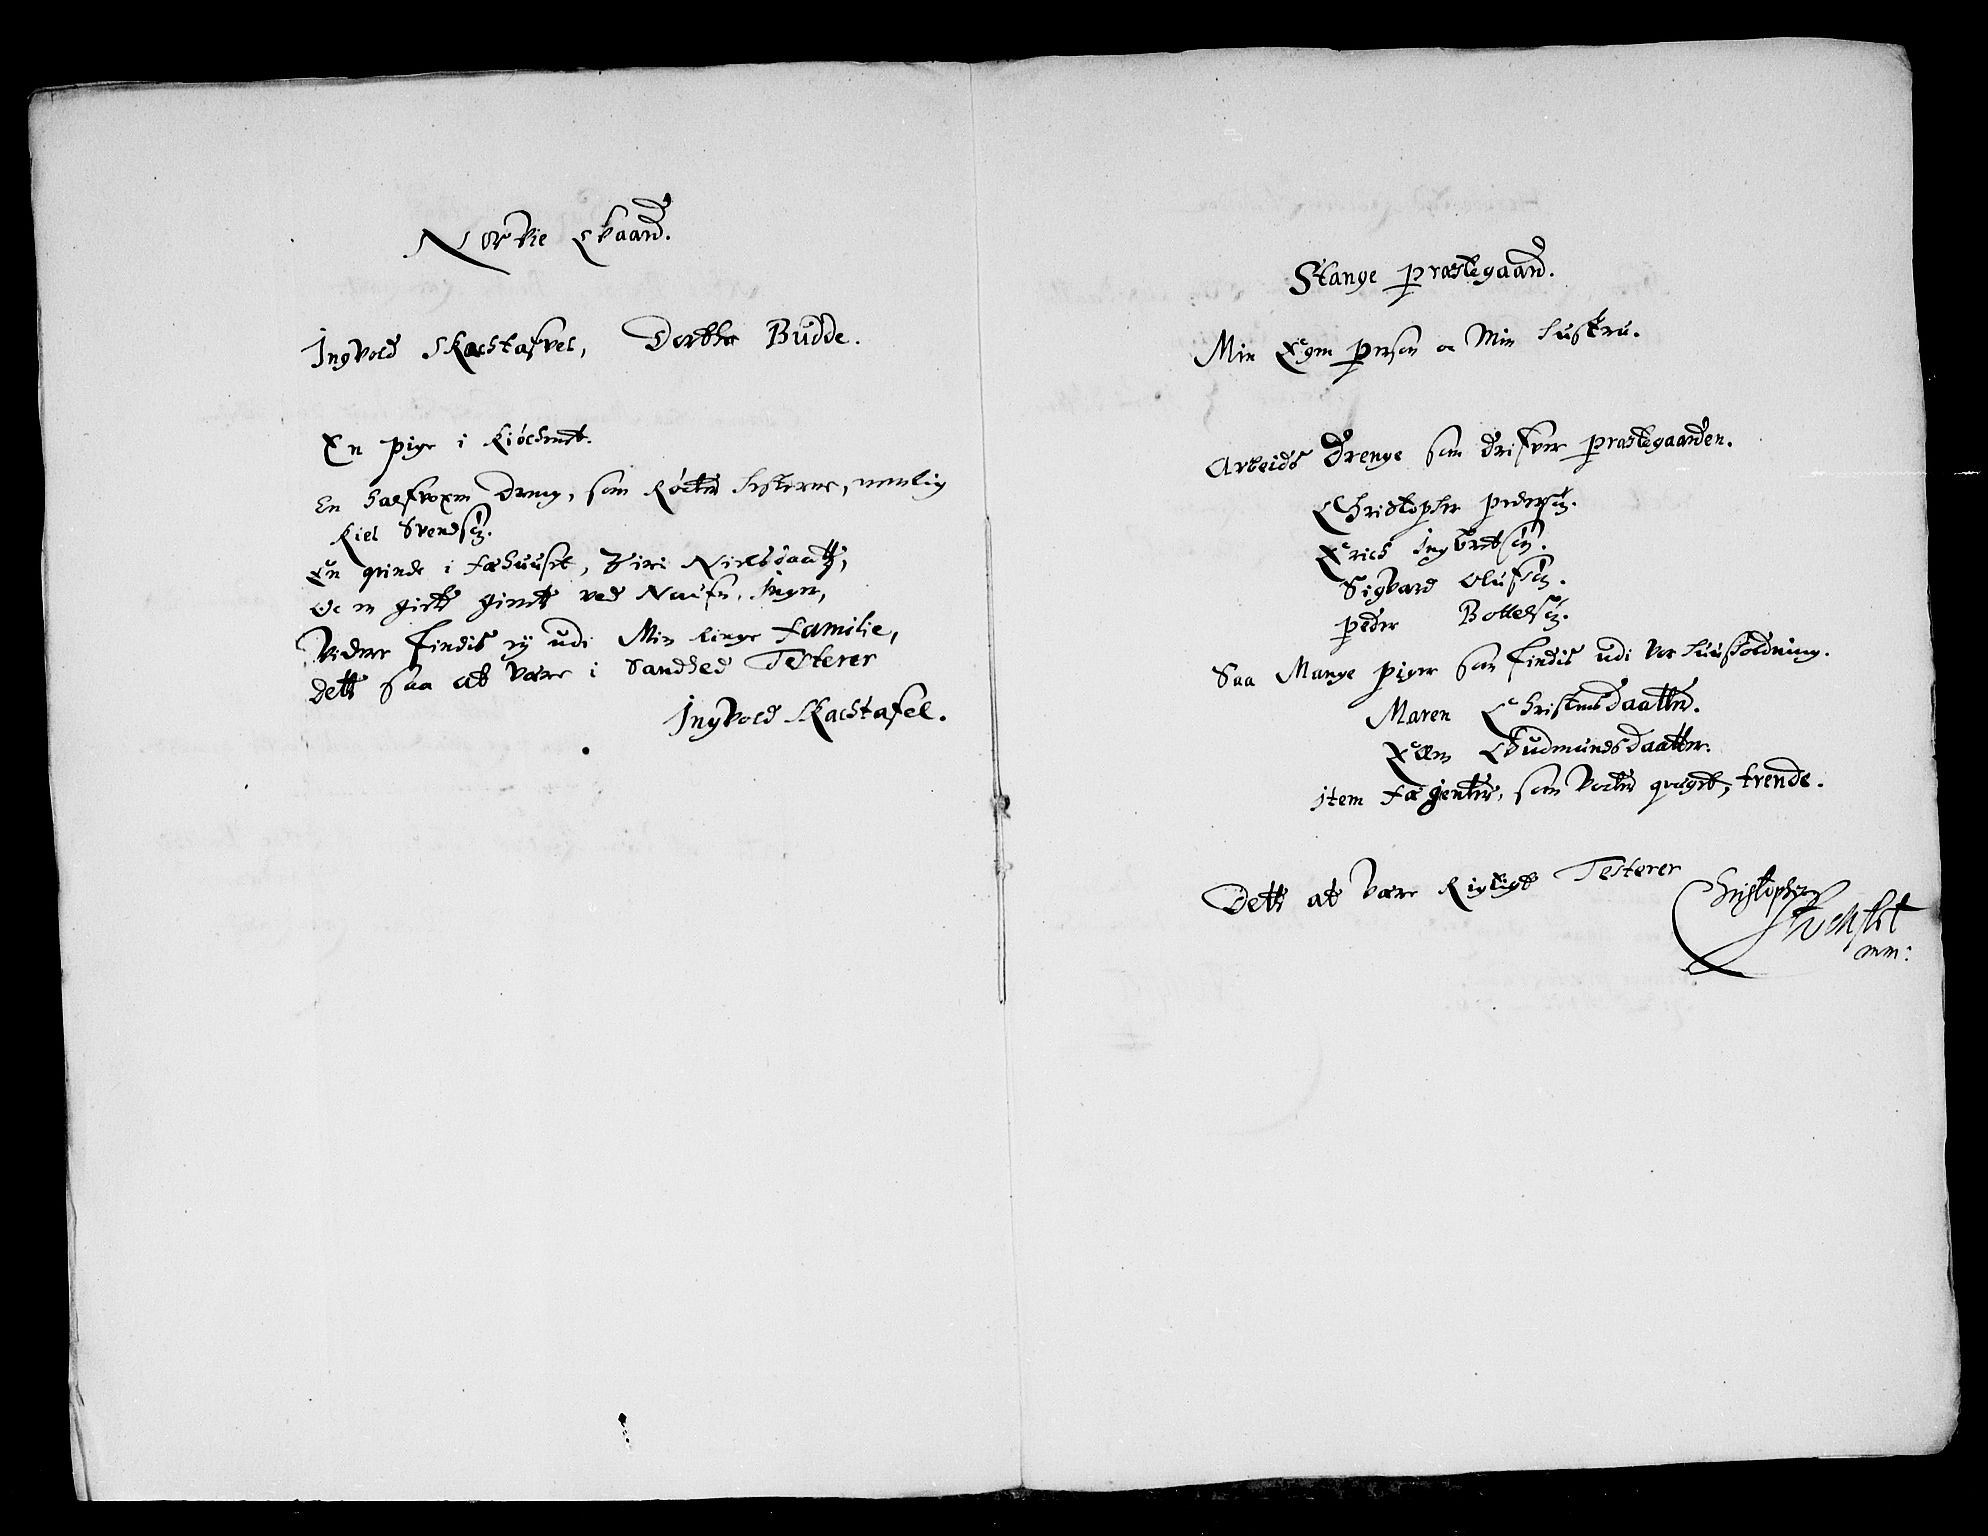 Nørvie Gaard.
Ingvold Skachtafvel, Dorthe Budde.
En pige i Kiøchenet.
En halfvoxen Dreng, som Røcter Hesterne, nemlig
Kiel Svendsøn.
En qvinde i Fæhuuset, Siri Nielsdaatter,
Oc en giette giente ved Naufn, Inger,
Videre findis ey udi Min ringe Familie,
Dette saa at være i Sandhed Testerer
Ingvold Skachtafel.
Stange præstegaard.
Min Egen person oc Min Hustru.
Arbeids Drenge som drifver præstegaarden.
Christopher pedersøn.
Erich Ingbretsøn.
Sigvard Olufsøn.
peder Bottelsøn.
Saa Mange piger som findis udi vor Huusholdning.
Maren Christensdaatter.
Elen Gudmundsdaatter.
item Fægenter, som vocter qveget, trende.
Dette at være Rigtigt Testerer
Christopher
mm: